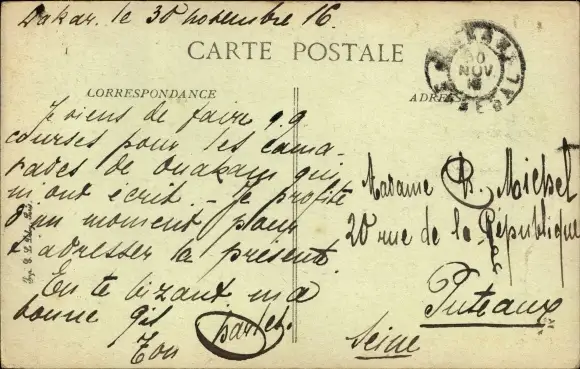 Dakar. le 30 novembre 16.
CARTE POSTALE
CORRESPONDANCE
ADRESSE
DAKAR
30
NOV
16
SENEGAL
Je viens de faire q.q
courses pour les cama-
rades de Ouakam qui
m'ont écrit. - Je profite
d'un moment pour
t'adresser la présente.
En te bizant ma
bonne
Ton
Madame Ch. Michel
20 rue de la République
Puteaux
Seine